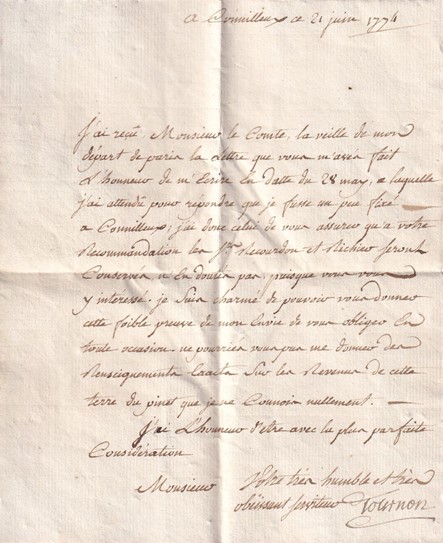 a Comilleux ce 21 juin 1774
J'ai reçu, Monsieur le Comte, la veille de mon
départ de paris la Lettre que vous m'avés fait
L'honneur de m'Ecrire en datte du 28 may, a laquelle
j'ai attendu pour repondre que je fusse un peu fixé
a Comilleux; j'ai donc celui de vous assurer qu'a votre
Recommandation les Srs Recourdon et Richier seront
Conservés n'en doutés pas, puisque vous vous
y interessé. je suis charmé de pouvoir vous donner
cette foible preuve de mon Envie de vous obliger En
toute occasion. ne pourriés vous pas me donner des
Renseignements Exacts Sur les Revenus de cette
terre du pinet que je ne Connois nullement.
J'ai L'honneur d'etre avec la plus parfaite
Considération
Monsieur
Votre très humble et très
obéissant serviteur Tournon